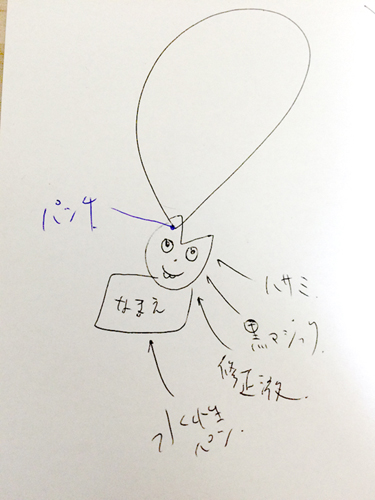 パンチ
なまえ
ハサミ.
黒マジック.
修正液.
水性
ペン.